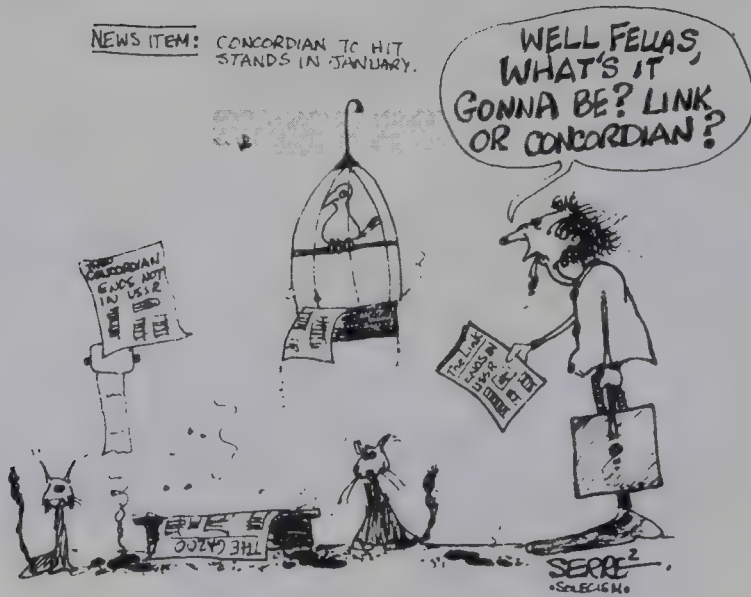 NEWS ITEM: CONCORDIAN TO HIT
STANDS IN JANUARY.
WELL FELLAS,
WHAT'S IT
GONNA BE? LINK
OR CONCORDIAN?
CONCORDIAN
ENDS NOT
IN USSR
The Link
ENDS IN
USSR
THE GAZOO
SERRE²
•SOLECISM•